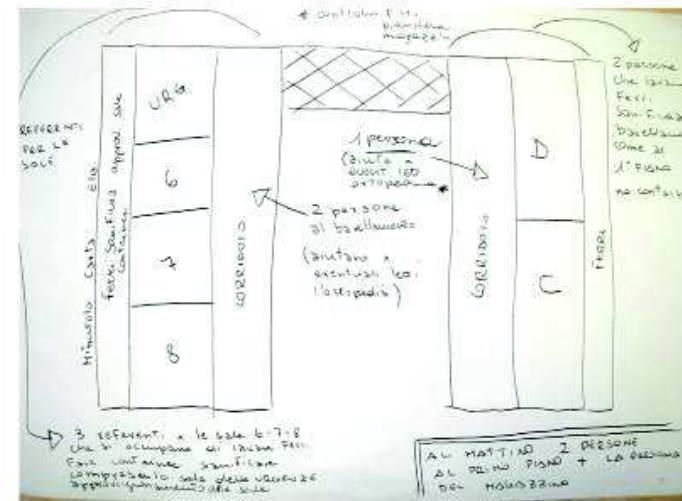 * controllo
magazzini
REFERENTI
PER LE
SALE
URG
6
7
8
Ferri Sanifica approv sale
container
CORRIDOIO
2 persone
al barellamento
(aiutano x
eventuali
l'ortopedia)
1 persona
(aiuta x
event
ortopedia *
CORRIDOIO
D
C
FERRI
2 persone
che
Ferri
Sanifica
come al
1° PIANO
no container
3 referenti x le sale 6-7-8
che si occupano di lavare Ferri
Fare container sanificare
compreso la sala delle URGENZE
approvvigionamento delle sale
AL MATTINO 2 PERSONE
AL PRIMO PIANO + LA PERSONA
DEL MAGAZZINO